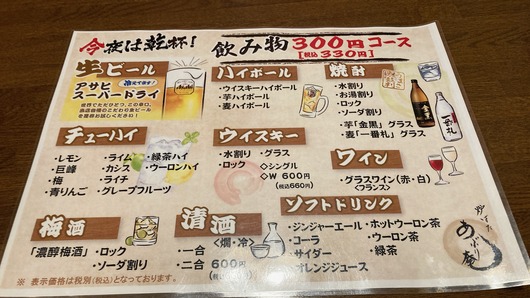 今夜は乾杯!
飲み物300円コース
[税込330円]
生ビール
アサヒ
スーパードライ
Asahi
ハイボール
・ウイスキーハイボール
・芋ハイボール
・麦ハイボール
焼酎
・水割り
・お湯割り
・ロック
・ソーダ割り
・芋「金黒」グラス
・麦「一番札」グラス
チューハイ
・レモン
・巨峰
・梅
・青りんご
・ライム
・カシス
・ライチ
・グレープフルーツ
・緑茶ハイ
・ウーロンハイ
ウイスキー
・水割り
・ロック
・グラス
◇シングル
◇W 600円
(税込660円)
ワイン
・グラスワイン(赤・白)
<フランス>
梅酒
「濃醇梅酒」
・ロック
・ソーダ割り
清酒
<燗・冷>
・一合
・二合 600円
ソフトドリンク
・ジンジャーエール
・コーラ
・サイダー
・オレンジジュース
・ホットウーロン茶
・ウーロン茶
・緑茶
あぶり庵
※ 表示価格は税別(税込)となっております。